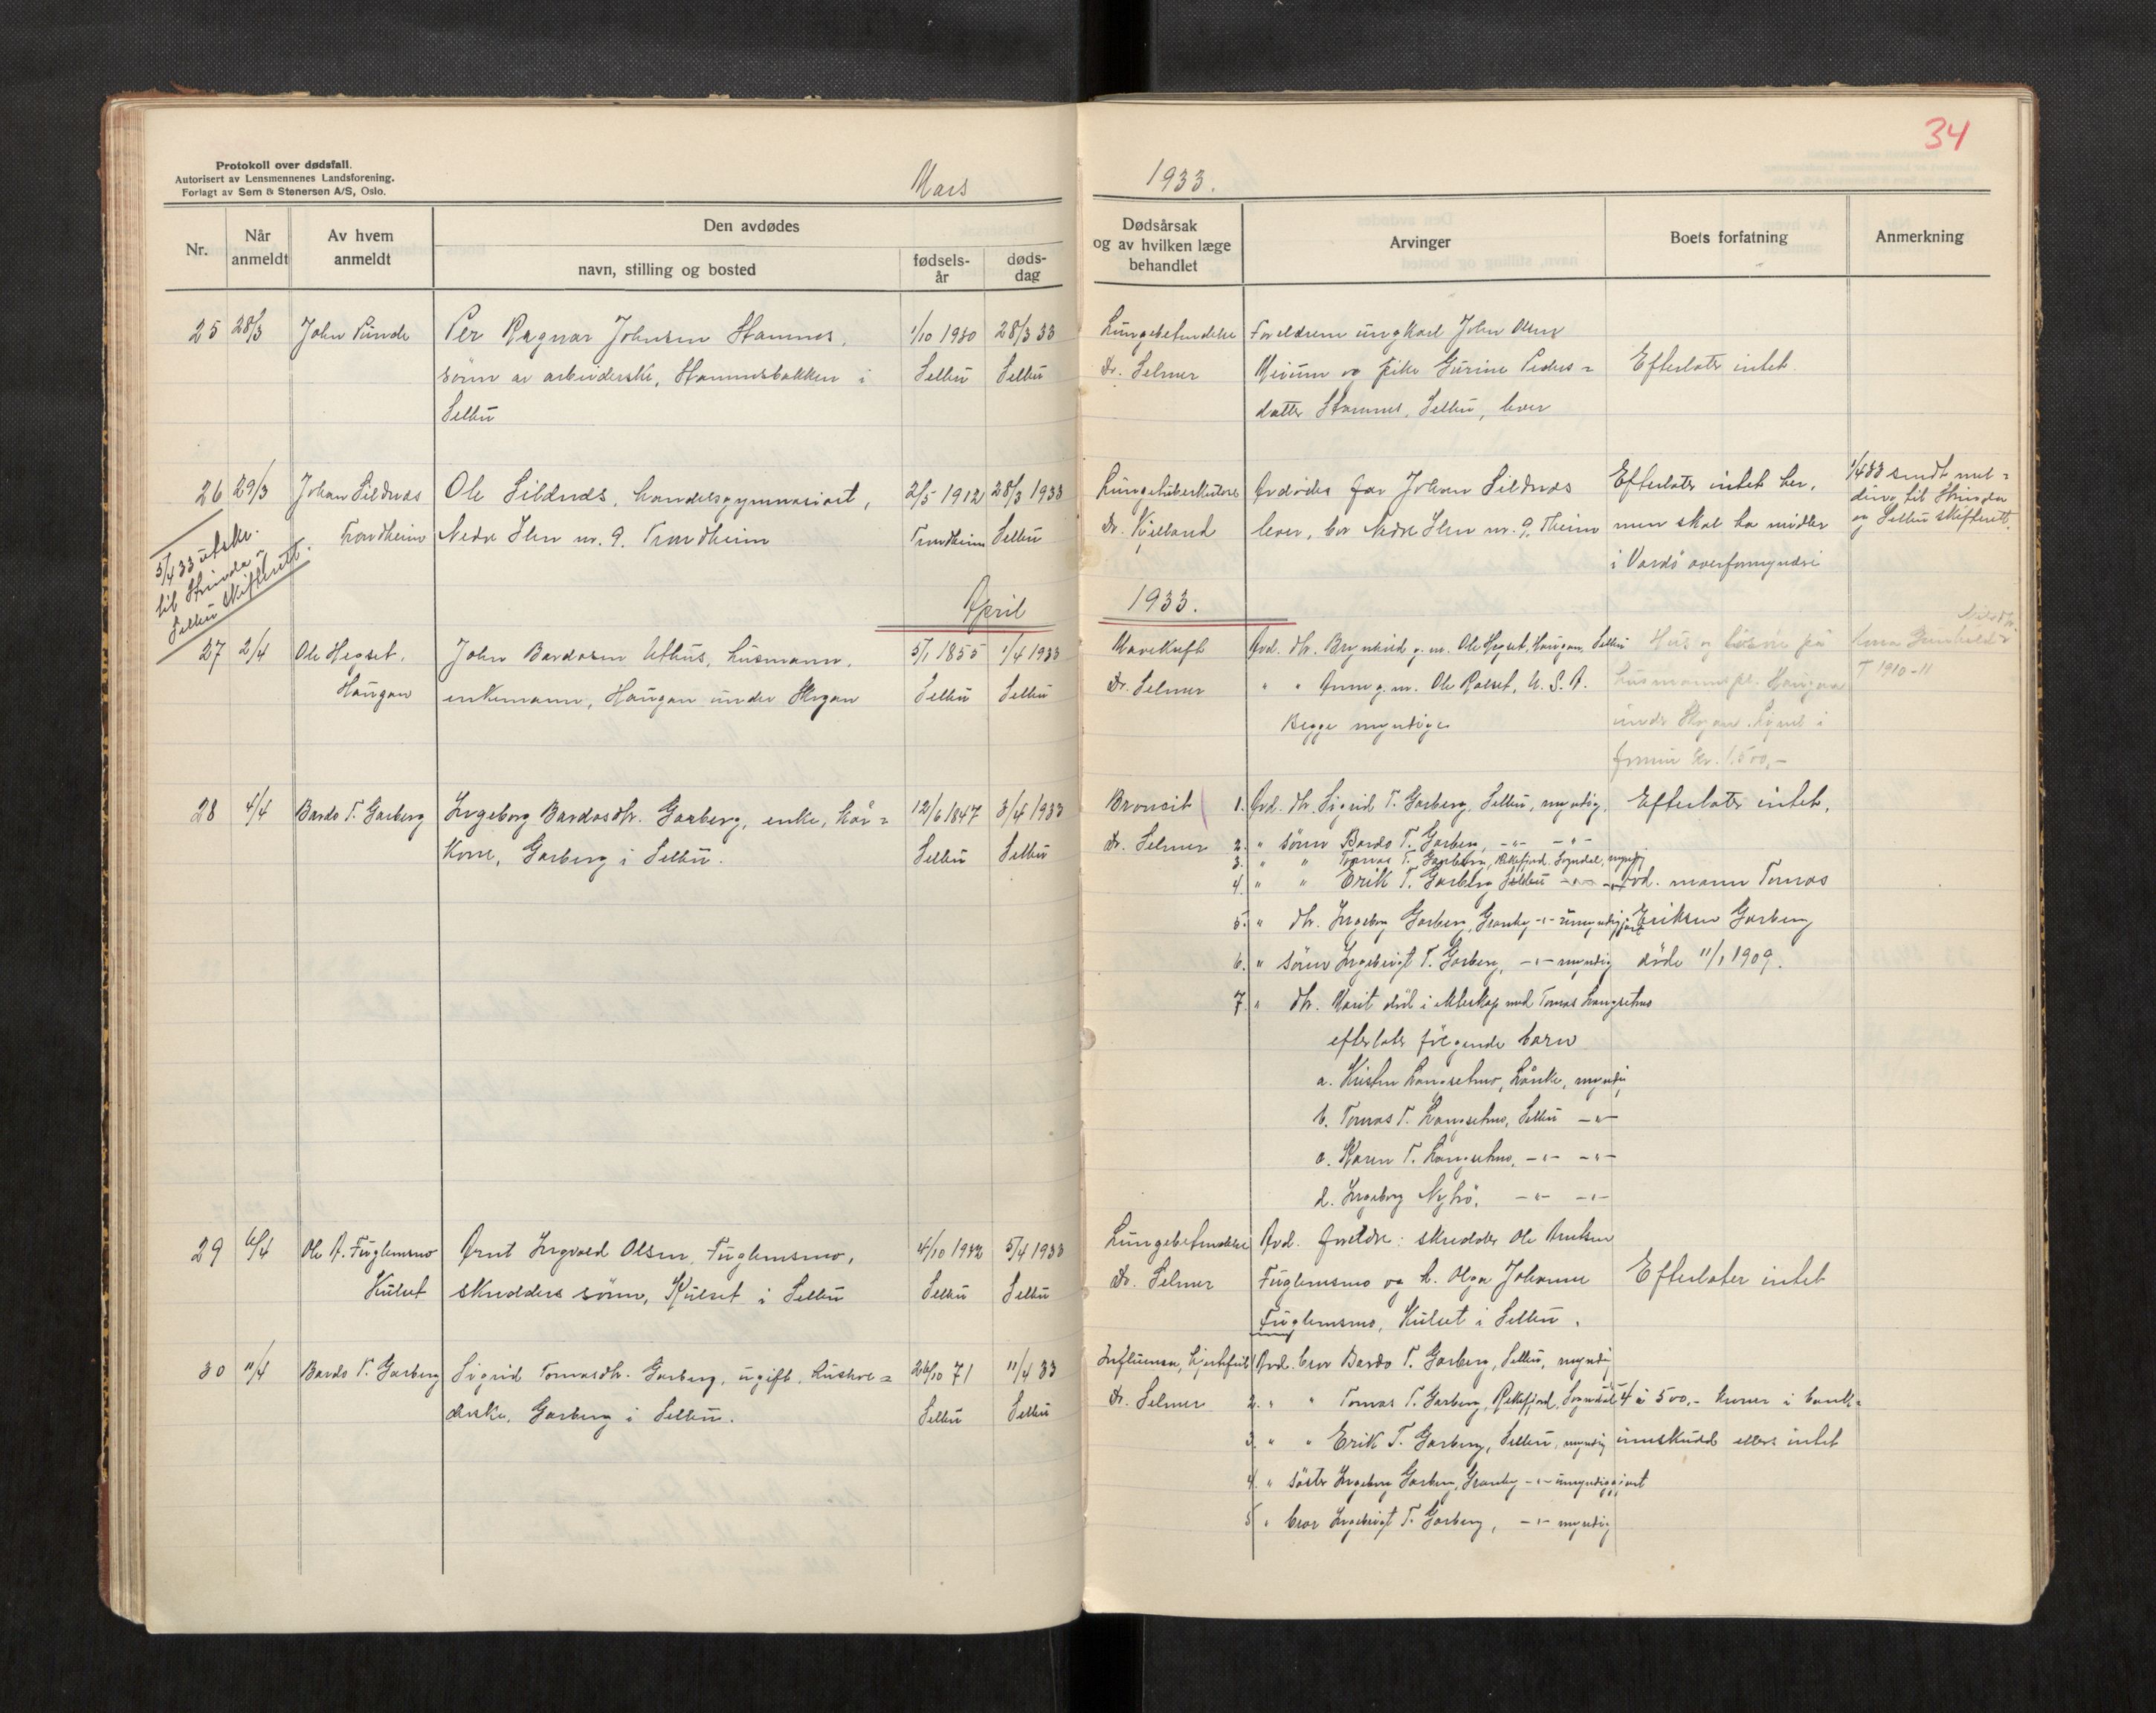 Protokoll over dødsfall.
Autorisert av Lensmennenes Landsforening.
Forlagt av Sem & Stenersen A/S, Oslo.
Mars
Nr.
Når anmeldt
Av hvem anmeldt
Den avdødes
navn, stilling og bosted
fødsels-år
døds-dag
25 28/3 John Punde Per Ragnar Johnsen Stamnes, 1/10 1930 28/3 33
sönn av arbeiderske, Stamnesbakken i Selbu Selbu
Selbu
26 29/3 Johan Sildnes Ole Sildnes, handelsgymnasiast, 2/5 1912 28/3 1933
Trondheim Nedre Ilen nr. 9. Trondheim Trondheim Selbu
5/4 33 utskr.
til Strinda og
Selbu skifterett.
April
27 2/4 Ole Hegset, John Bardosen Uthus, husmann, 5/1 1855 1/4 1933
Haugan enkemann, Haugan under Mogan Selbu Selbu
28 4/4 Bardo T. Garberg Ingeborg Bardosdtr. Garberg, enke, kår=
12/6 1847 3/4 1933
kone, Garberg i Selbu. Selbu Selbu
29 6/4 Ole A. Fuglemsmo Arnt Ingvald Olsen Fuglemsmo, 4/10 1932 5/4 1933
Kulset skredders sönn, Kulset i Selbu Selbu Selbu
30 11/4 Bardo T. Garberg Sigrid Tomasdtr. Garberg, ugift, hushol= 26/10 71 11/4 33
derske, Garberg i Selbu. Selbu Selbu
34
1933.
Dødsårsak og av hvilken læge behandlet
Arvinger
Boets forfatning
Anmerkning
Lungebetendelse Foreldrene ungkarl John Olsen
Dr. Selmer og pike Gurine Peders= Efterlater intet.
datter Stamnes, Selbu, lever
Lungetuberkulose Avdödes far Johan Sildnes Efterlater intet her, 1/4 33 sendt mel=
Dr. Kielland lever, bor Nedre Ilen nr. 9, Theim men skal ha midler ding til Strinda
og Selbu skifterett.
i Vardö overformynderi
1933.
Mavekreft Avd. dtr. Brynhild g.m. Ole Hegset, Haugan, Selbu Hus og lösöre på
Dr. Selmer " " Anne g.m. Ole Rolset, U.S.A. husmannspl. Haugan T 1910-11
Begge myndige under Mogan. Lignet i
formue kr. 1.500,-
Bronkit 1. Avd. dtr. Sigrid T. Garberg, Selbu, myndig, Efterlater intet,
Dr. Selmer 2. " sönn Bardo T. Garberg, -"- -"-
3. " " Tomas T. Garberg, Rekefjord, Sogndal, myndig
4. " " Erik T. Garberg Selbu -"- Avd. mann Tomas
5. " dtr. Ingeborg Garberg, Granby -"- umyndiggjort Eriksen Garberg
6. " sönn Ingebrigt T. Garberg, -"- myndig döde 11/1 1909.
7. " dtr. Marit död i ekteskap med Tomas Langsetmo
efterlater fölgende barn
a. Kristen Langsetmo, Lånke, myndig
b. Tomas T. Langsetmo, Selbu -"-
c. Karen T. Langsetmo, -"- -"-
d. Ingeborg Nybrö, -"- -"-
Lungebetendelse Avd. foreldre: skredder Ole Arntsen
Dr. Selmer Fuglemsmo og h. Olga Johanne Efterlater intet
Fuglemsmo, Kulset i Selbu.
Influensa, hjertefeil Avd. bror Bardo T. Garberg, Selbu, myndig
Dr. Selmer 2. " " Tomas T. Garberg, Rekefjord, Sogndal 4 à 500,- kroner i bank=
3. " " Erik T. Garberg, Selbu, myndig innskudd ellers intet
4. " söster Ingeborg Garberg, Granby -"- umyndiggjort
5. " bror Ingebrigt T. Garberg, -"- myndig